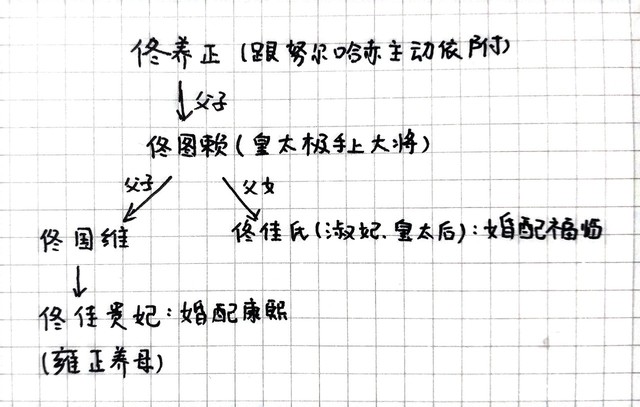 佟养正(跟努尔哈赤主动依附)
父子
佟图赖(皇太极手上大将)
父子 父女
佟国维 佟佳氏(淑妃、皇太后):婚配福临
佟佳贵妃:婚配康熙
(雍正养母)